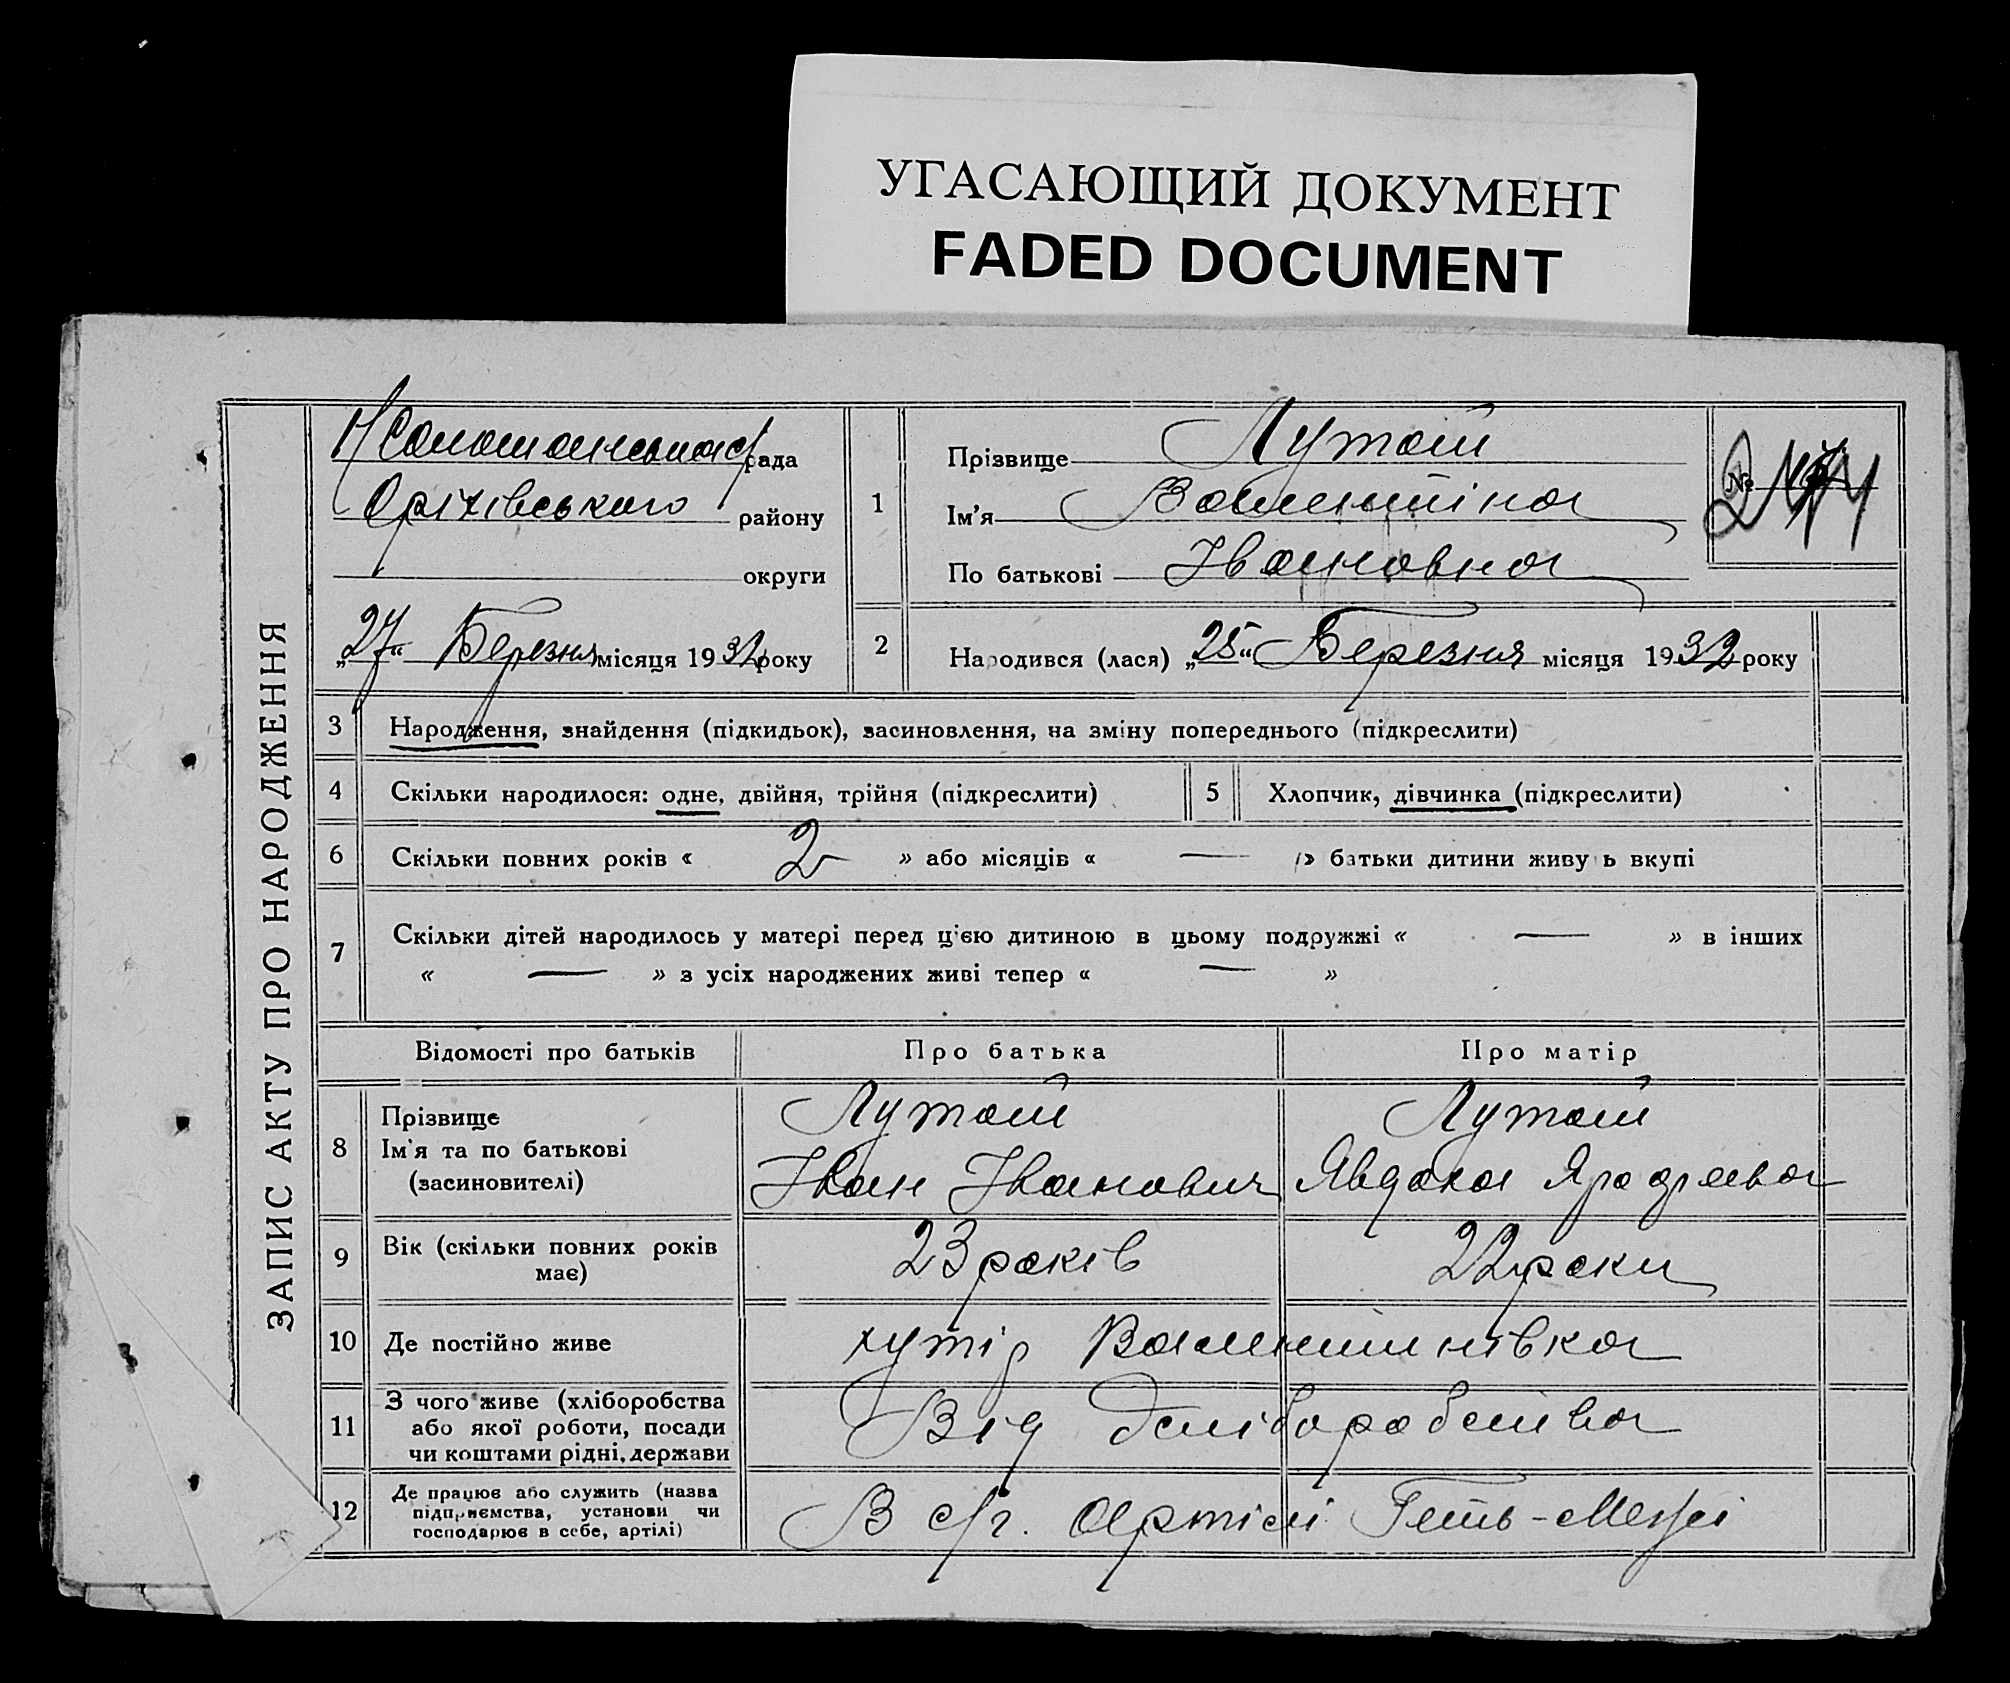 УГАСАЮЩИЙ ДОКУМЕНТ
FADED DOCUMENT
ЗАПИС АКТУ ПРО НАРОДЖЕННЯ
рада
Оріхівського району
округи
„27“ Березня місяця 1932 року
1
Прізвище Лутай
Ім'я Валентіна
По батькові Івановна
№
2
Народився (лася) „25“ Березня місяця 1932 року
3 Народження, знайдення (підкидьок), засиновлення, на зміну попереднього (підкреслити)
4 Скільки народилося: одне, двійня, трійня (підкреслити)
5 Хлопчик, дівчинка (підкреслити)
6 Скільки повних років « 2 » або місяців « — » батьки дитини живуть вкупі
7 Скільки дітей народилось у матері перед цією дитиною в цьому подружжі « — » в інших
« — » з усіх народжених живі тепер « — »
Відомості про батьків
Про батька
Про матір
8 Прізвище
Ім'я та по батькові
(засиновителі)
Лутай
Іван Іванович
Лутай
Явдоха
9 Вік (скільки повних років
має)
23 років
22 роки
10 Де постійно живе
хутір Валентинівка
11 З чого живе (хліборобства
або якої роботи, посади
чи коштами рідні, держави
Від хліборобства
12 Де працює або служить (назва
підприємства, установи чи
господарює в себе, артілі)
В с/г. Артілі Геть-Межі